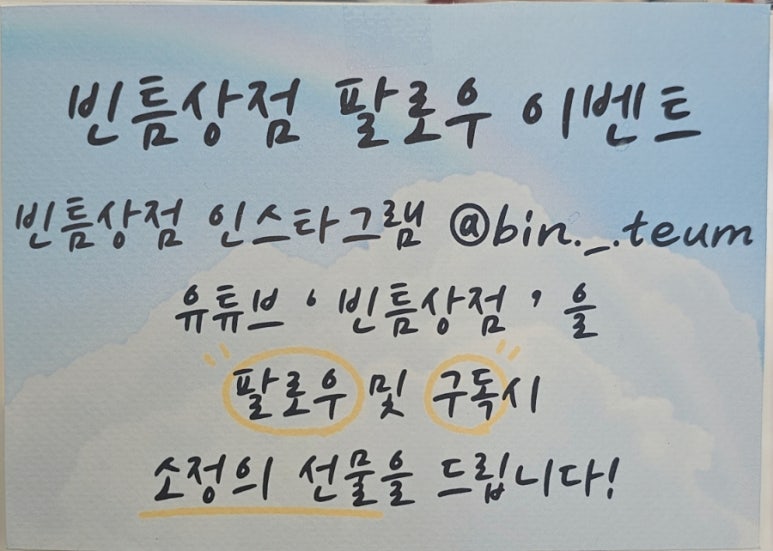 빈틈상점 팔로우 이벤트
빈틈상점 인스타그램 @bin._.teum
유튜브 '빈틈상점'을
팔로우 및 구독시
소정의 선물을 드립니다!